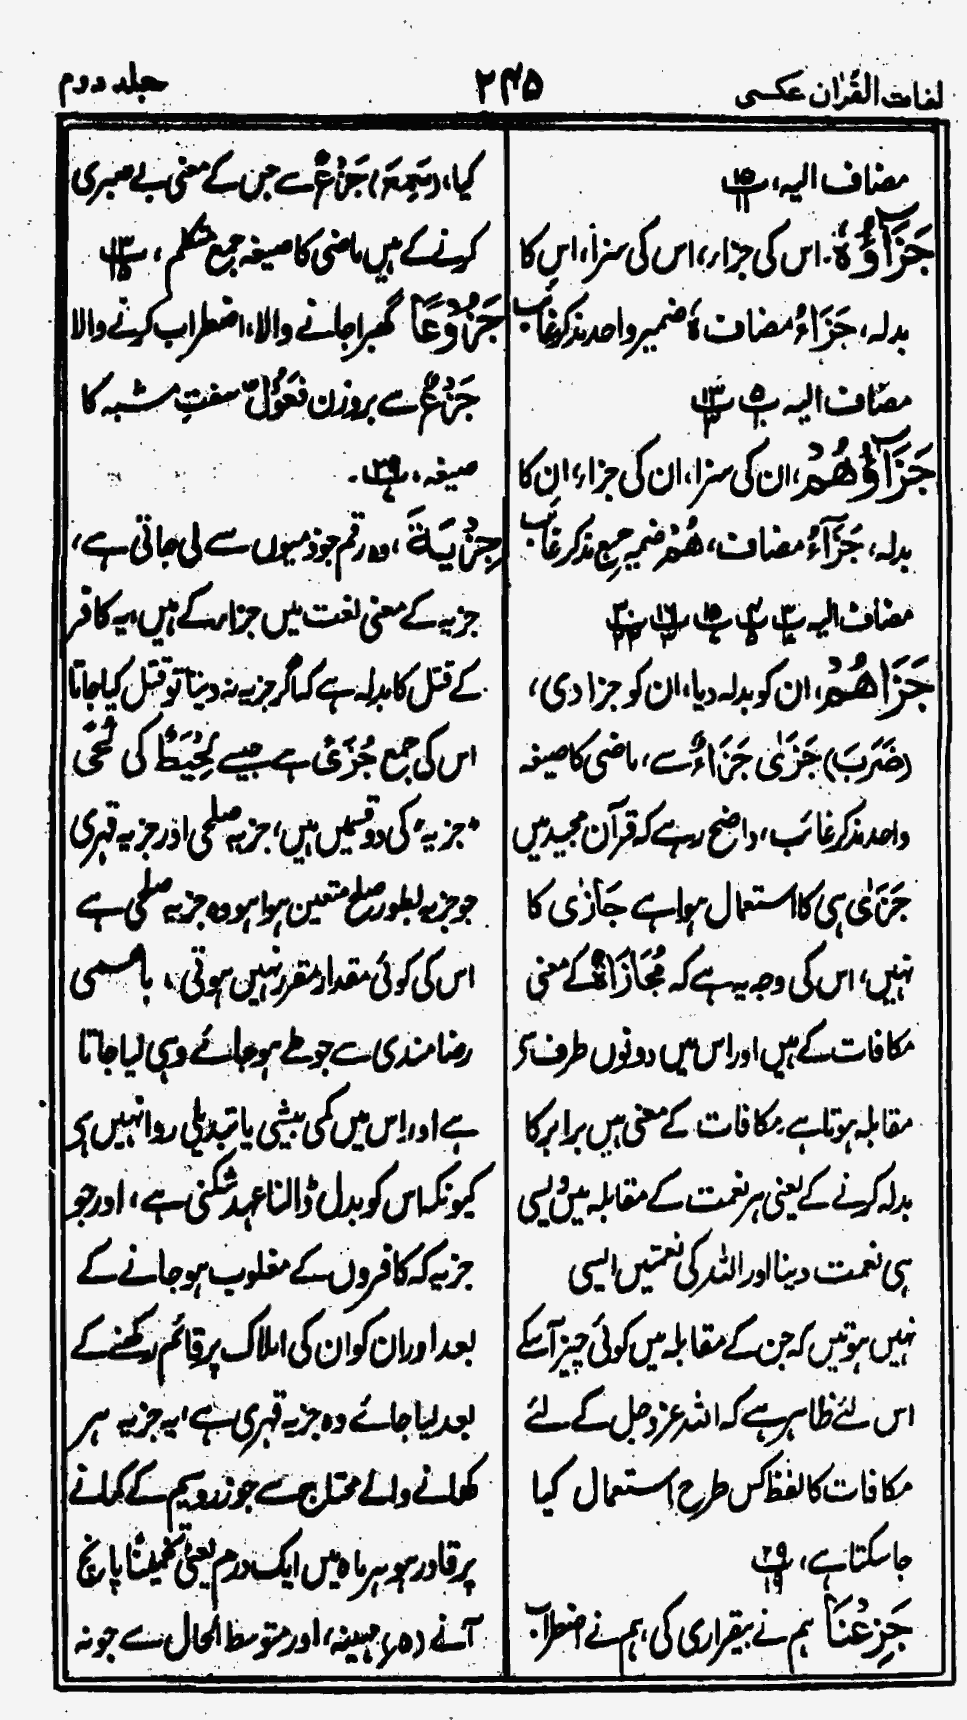 لغات القُرآن عکسی
۲۴۵
جلد دوم
مضاف الیہ، پ۱۵
جَزَآؤُہٗ۔ اس کی جزار، اس کی سزا، اس کا
بدلہ، جَزَاءُ مضاف ہٗ ضمیر واحد مذکر غائب
مضاف الیہ پ۵ پ۱۳
جَزَآؤُھُمْ، ان کی سزا، ان کی جزاء، ان کا
بدلہ، جَزَآءُ مضاف، ھُمْ ضمیر جمع مذکر غائب
مضاف الیہ
جَزَاھُمْ، ان کو بدلہ دیا، ان کو جزا دی،
(ضَرَبَ) جَزٰی جَزَاءٌ سے، ماضی کا صیغہ
واحد مذکر غائب، واضح رہے کہ قرآن مجید میں
جَزَی ہی کا استعمال ہوا ہے جَازٰی کا
نہیں، اس کی وجہ یہ ہے کہ مُجَازَاۃٌ کے معنی
مکافات کے ہیں اور اس میں دونوں طرف سے
مقابلہ ہوتا ہے۔ مکافات کے معنی ہیں برابر کا
بدلہ کرنے کے یعنی ہر نعمت کے مقابلہ میں ویسی
ہی نعمت دینا اور اللہ کی نعمتیں ایسی
نہیں ہوتیں کہ جن کے مقابلہ میں کوئی چیز آسکے
اس لئے ظاہر ہے کہ اللہ عزوجل کے لئے
مکافات کا لفظ کس طرح استعمال کیا
جا سکتا ہے، پ۲۹
جَزِعْنَا ہم نے بیقراری کی، ہم نے اضطراب
کیا، (سَمِعَ) جَزَعٌ سے جس کے معنی بے صبری
کرنے کے ہیں ماضی کا صیغہ جمع متکلم، پ۱۳
جَزُوْعًا گھبرا جانے والا، اضطراب کرنے والا
جَزَعٌ سے بروزن فَعُوْلٌ صفتِ مشبہ کا
صیغہ، پ۲۹۔
جِزْیَۃَ، وہ رقم جو ذمیوں سے لی جاتی ہے،
جزیہ کے معنی لغت میں جزاء کے ہیں، یہ کافر
کے قتل کا بدلہ ہے کہ اگر جزیہ نہ دیتا تو قتل کیا جاتا
اس کی جمع جُزًی ہے جیسے لِحْیَۃٌ کی لُحًی
"جزیہ" کی دو قسمیں ہیں، جزیہ صلحی اور جزیہ قہری
جو جزیہ بطور صلح متعین ہوا ہو وہ جزیہ صلحی ہے
اس کی کوئی مقدار مقرر نہیں ہوتی، باہمی
رضامندی سے جو طے ہو جائے وہی لیا جاتا
ہے اور اس میں کمی بیشی یا تبدیلی روا نہیں ہے
کیونکہ اس کو بدل ڈالنا عہد شکنی ہے، اور جو
جزیہ کہ کافروں کے مغلوب ہو جانے کے
بعد اور ان کو ان کی املاک پر قائم رکھنے کے
بعد لیا جائے وہ جزیہ قہری ہے، یہ جزیہ ہر
کھانے والے محتاج سے جو زر و سیم کے کمانے
پر قادر ہو ہر ماہ میں ایک درہم یعنی تخمینًا پانچ
آنے (۵؍) مہینہ، اور متوسط الحال سے جو نہ